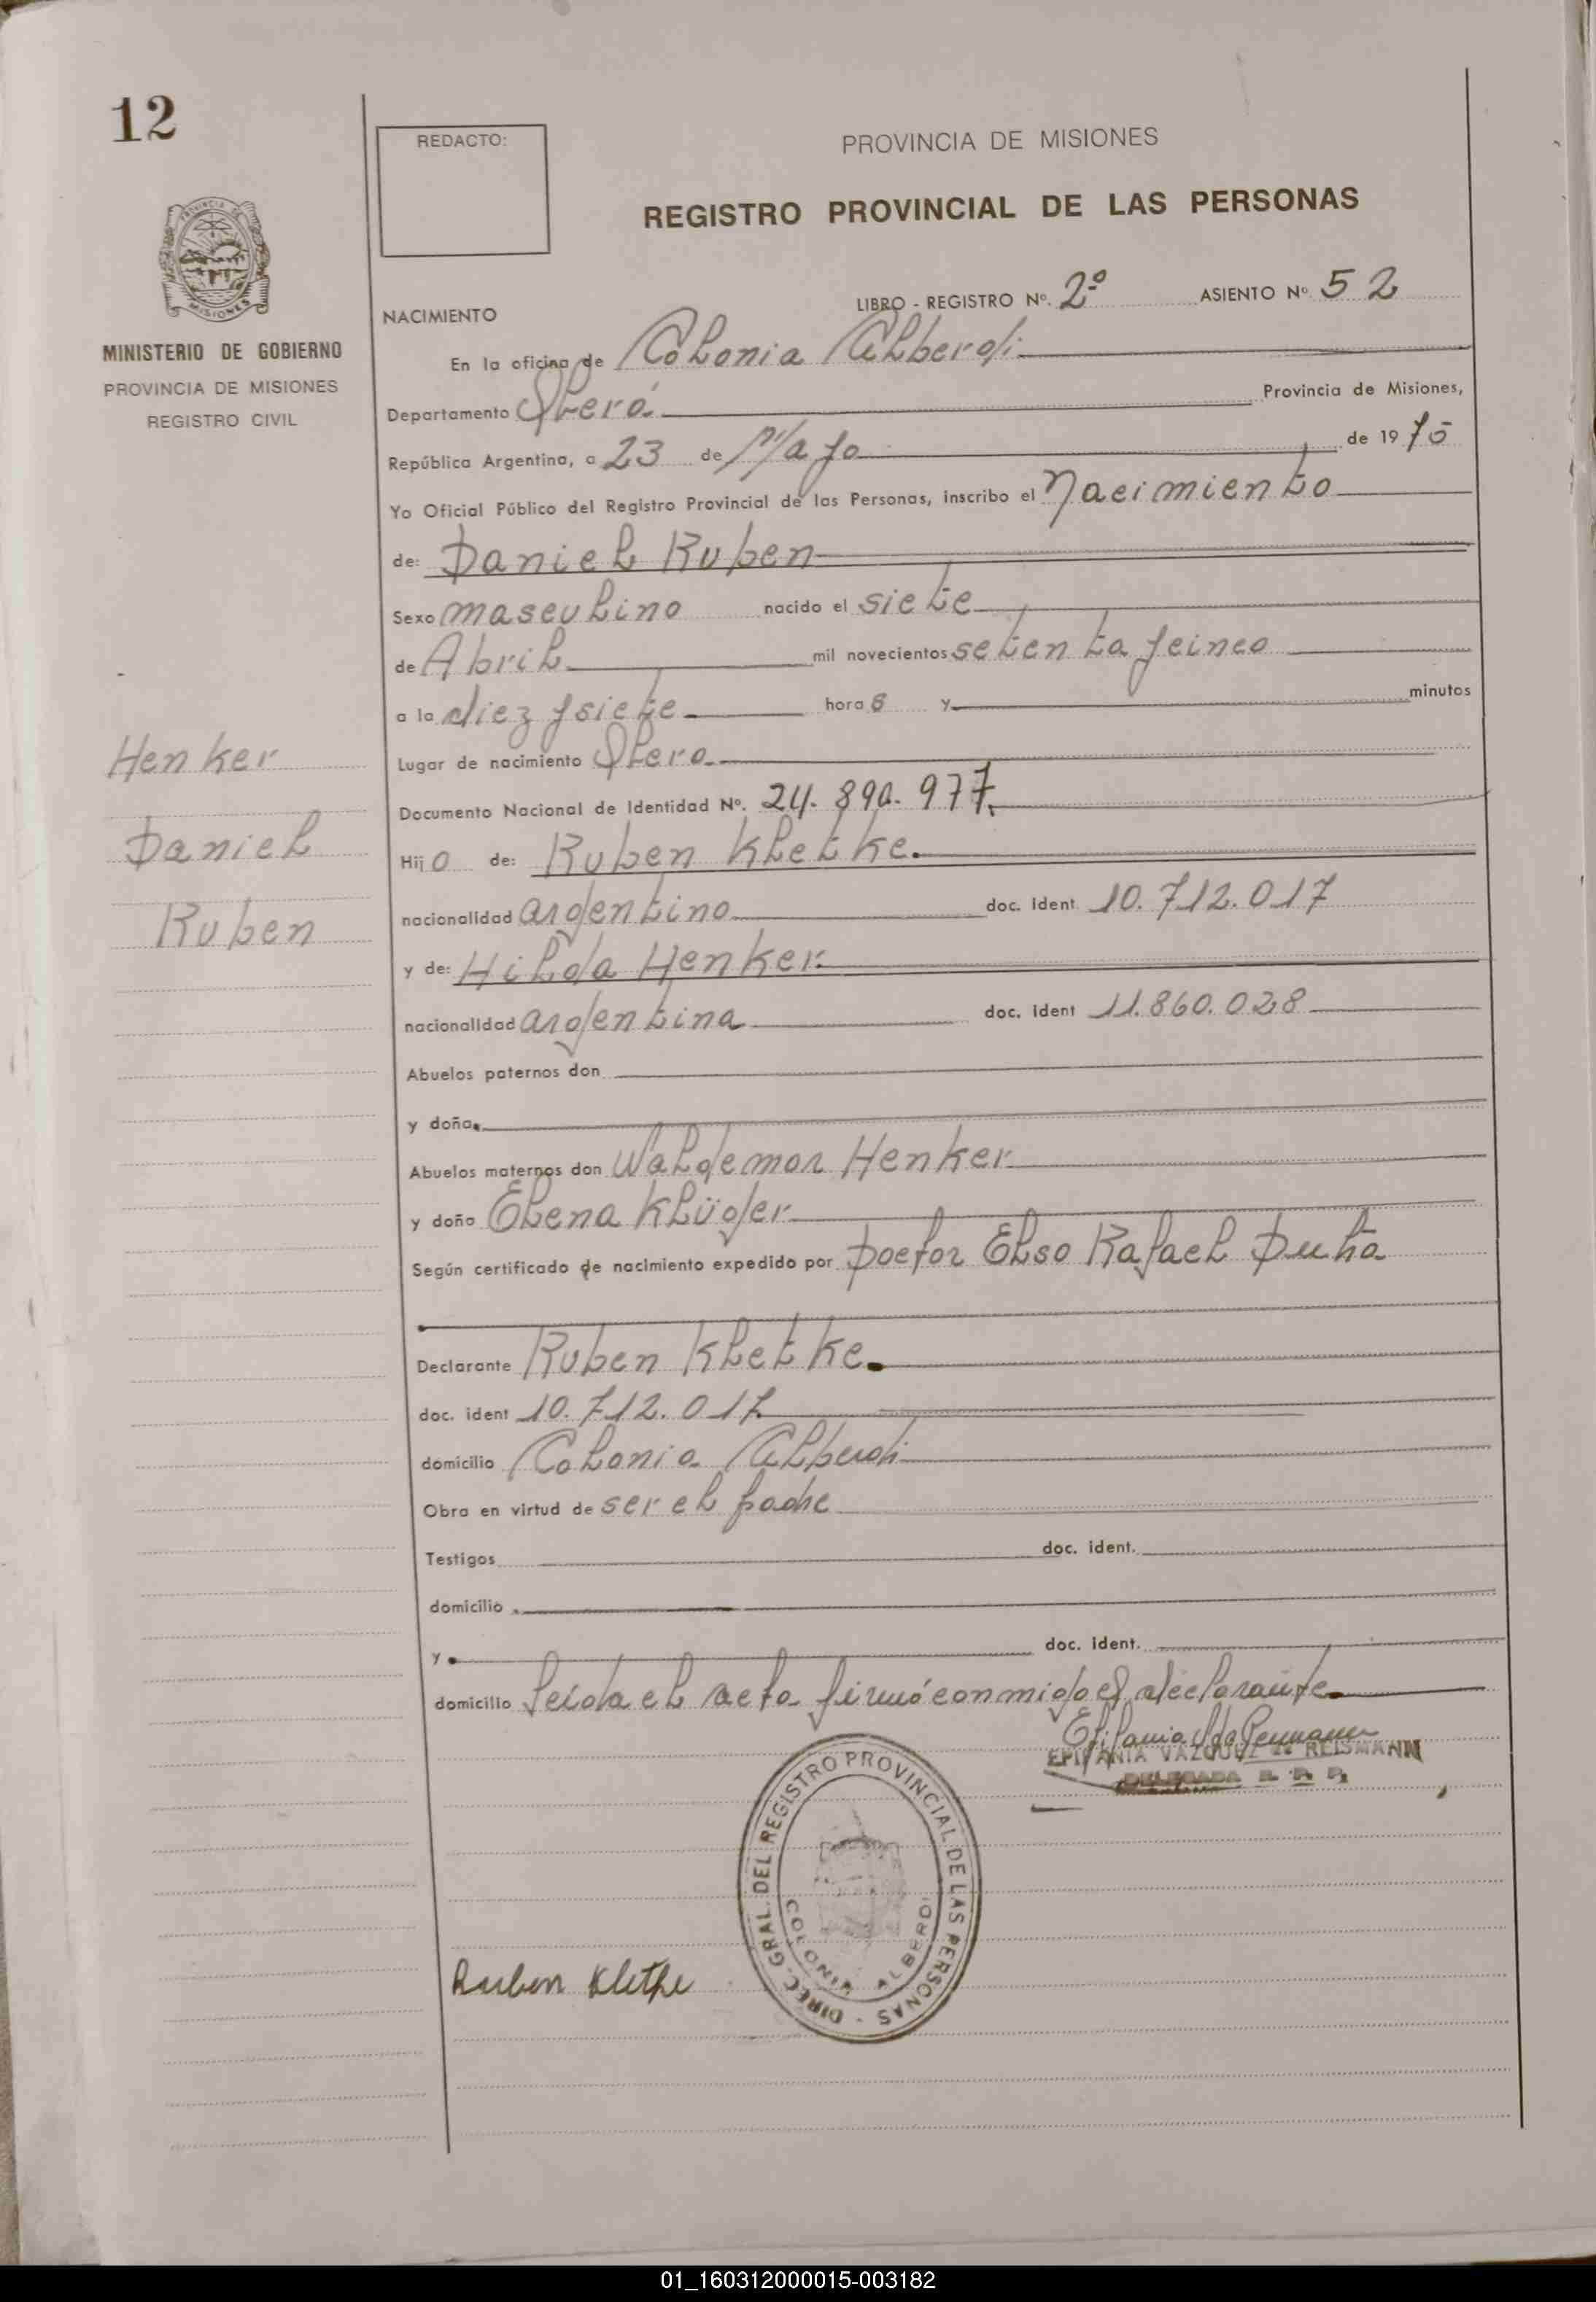 12
REDACTO:
PROVINCIA DE MISIONES
REGISTRO PROVINCIAL DE LAS PERSONAS
PROVINCIA DE
MISIONES
MINISTERIO DE GOBIERNO
PROVINCIA DE MISIONES
REGISTRO CIVIL
NACIMIENTO
LIBRO - REGISTRO Nº. 2º ASIENTO Nº 52
En la oficina de Colonia Alberdi
Departamento Oberá Provincia de Misiones,
República Argentina, a 23 de Mayo de 1975
Yo Oficial Público del Registro Provincial de las Personas, inscribo el Nacimiento
de: Daniel Ruben
Sexo masculino nacido el siete
de Abril mil novecientos setenta y cinco
a la diez y siete hora s y minutos
Lugar de nacimiento Obera
Documento Nacional de Identidad Nº. 24.890.977.
Hijo de: Ruben Kletke.
nacionalidad argentino doc. ident 10.712.017
y de: Hilda Henker
nacionalidad argentina doc. ident 11.860.028
Abuelos paternos don
y doña
Abuelos maternos don Waldemar Henker
y doña Elena Klüger
Según certificado de nacimiento expedido por Doctor Elso Rafael
Declarante Ruben Kletke.
doc. ident 10.712.017
domicilio Colonia Alberdi
Obra en virtud de ser el padre
Testigos doc. ident.
domicilio
y doc. ident.
domicilio Leida el acta firmó conmigo el declarante
EPIFANIA VAZQUEZ de REISMANN
DELEGADA R. P. P.
Henker
Daniel
Ruben
DIREC. GRAL. DEL REGISTRO PROVINCIAL DE LAS PERSONAS -
COLONIA ALBERDI
Ruben Kletke
01_160312000015-003182